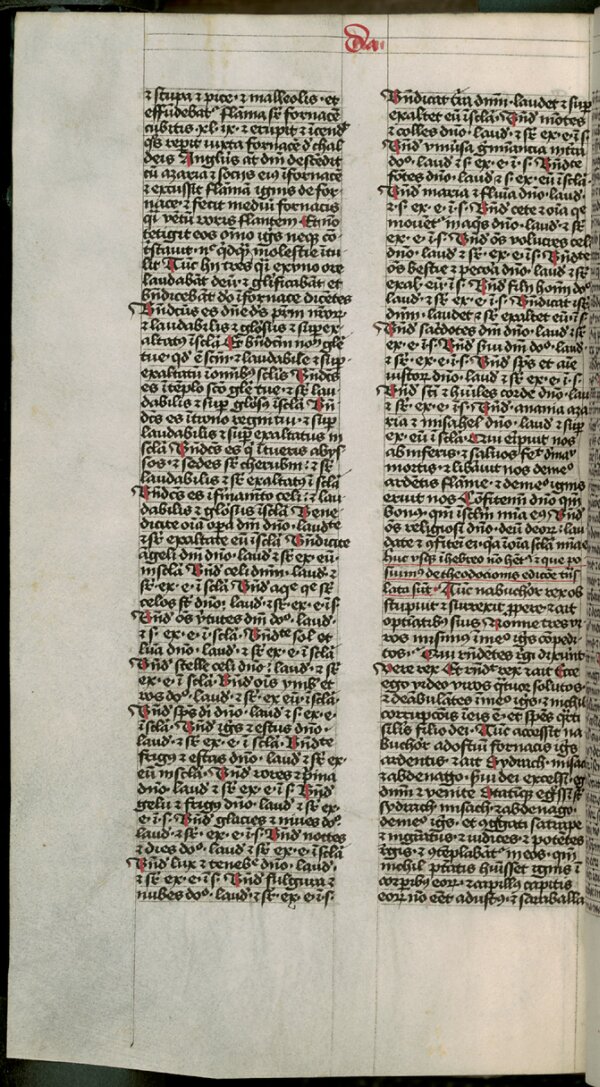 Da
⁊ stupa ⁊ pice · ⁊ malleolis · et
effūdebat᷑ flāma sr̄ fornacē
cubitis · xl · ix · ⁊ erupit ⁊ īcend
q̄s repit iuxta fornacē d̄ chal
deis Anglus at dn̄i descēdit
cū azaria ⁊ sociis eiꝰ ī fornacē
⁊ excussit flāmā ignis de for
nace · ⁊ fecit mediū fornacis
q̄i vētū roris flantem Et nō
tetigit eos om̄o igs neqꝫ cō
tstauit · nc̄ qͥdqͣꝫ molestie ītu
lit Tūc hii tres q̄i ex vno ore
laudabāt deū · ⁊ glīficabāt et
bn̄dicebāt do ī fornace dicētes
Bn̄dictꝰ es dn̄e dꝰ pr̄m nr̄oꝝ
⁊ laudabilis ⁊ glosꝰ ⁊ sup ex
altatꝰ ī scl̄a Et bn̄dictm̄ nom̄ glē
tue · qd̓ ē scm̄ · ⁊ laudabile ⁊ sup
exaltatū ī om̄ibꝰ sclīs Bn̄dcs̄
es ī tēplo scō glē tue · ⁊ sr̄ lau
dabilis ⁊ sup glosꝰ ī scl̄a Bn̄
dcs̄ es ī trono regni tui · ⁊ sup
laudabilis ⁊ sup exaltatus in
scl̄a Bn̄dcs̄ es q̄ ītueris abys
sos · ⁊ sedes sr̄ cherubin : ⁊ sr̄
laudabilis ⁊ sr̄ exaltatꝰ ī scl̄a
Bn̄dcs̄ es ī firmamēto celi : ⁊ lau
dabilis ⁊ glosus ī scl̄a Bene
dicite oīa opa dn̄i dn̄o · laudte
⁊ sr̄ exaltate eū ī scl̄a Bn̄dicite
āgeli dn̄i dn̄o · laud̓ ⁊ sr̄ ex · eū ·
in scl̄a Bn̄d̓ celi dn̄m · laud̓ · ⁊
sr̄ · ex · e · ī scl̄a Bn̄d̓ aqe qe sr̄
celos st̄ dn̄o · laud · ⁊ sr̄ · ex · e · ī · s ·
Bn̄d̓ ōs v̓tutes dn̄i do · laud ·
⁊ s · ex · e · ī scl̄a · Bn̄dte sol et
lūa dn̄o · laud · ⁊ sr̄ ex · e · ī scl̄a
Bn̄d̓ stelle celi dn̄o : laud · ⁊ sr̄
ex · e · ī scl̄a · Bn̄d oīs ymb̓ et
ros do · laud · ⁊ sr̄ ex eū ī scl̄a ·
Bn̄d̓ sp̄s di dn̄o · laud ⁊ sr̄ ex · e ·
ī scl̄a · Bn̄d̓ igs ⁊ estus dn̄o ·
laud̓ · ⁊ sr̄ ex · e · ī scl̄a · Bn̄dte
frigꝰ ⁊ estas dn̄o · laud ⁊ sr̄ ex ·
eū in scl̄a · Bn̄d̓ rores ⁊ pͥina
dn̄o · laud ⁊ sr̄ ex · e · ī · s · Bn̄d̓
gelu ⁊ frigꝰ dn̄o · laud̓ ⁊ sr̄ ex ·
e · ī · s · Bn̄d̓ glacies ⁊ niues do ·
laud̓ · ⁊ sr̄ ex · e · ī · s · Bn̄d̓ noctes
⁊ dies do · laud̓ ⁊ sr̄ ex · e · ī scl̄a
Bn̄d̓ lux ⁊ teneb̓ dn̄o · laud̓ ·
⁊ sr̄ ex · e · ī · s · Bn̄d̓ fulgura ⁊
nubes do · laud̓ · ⁊ sr̄ · ex · e · ī · s ·
Bn̄dicat t̓ra dn̄m · laudet ⁊ sup
exaltet eū ī scl̄a · Bn̄d mōtes
⁊ colles dn̄o · laud · ⁊ sr̄ ex · e · ī s
Bn̄d vniūsa gm̄inantia in tra
do · laud ⁊ s · ex · e · ī · s · Bn̄dte
fōtes dn̄o · laud ⁊ s · ex · eū ī scl̄a
Bn̄d maria ⁊ fluīa dn̄o · laud
⁊ · s · ex · e · ī · s · Bn̄d cete ⁊ oīa qe
mouēt᷑ in aqs dn̄o · laud ⁊ sr̄
ex · e · ī · s · Bn̄d ōs volucres celi
dn̄o · laud ⁊ sr̄ ex · e · ī · s · Bn̄dte
ōs bestie ⁊ pecora dn̄o · laud ⁊ sr̄
exal · eū ī · s · Bn̄d filii hoīm do
laud · ⁊ sr̄ ex · e · ī · s · Bn̄dicat isrl̄
dn̄m · laudet ⁊ sr̄ exaltet eū · ī · s
Bn̄d sac̓dotes dn̄i dn̄o · laud ⁊ sr̄
ex · e · ī · s · Bn̄d s̓ui dn̄i do · laud
⁊ sr̄ · ex · e · ī · s · Bn̄d sp̄s et aīe
iustoꝝ dn̄o · laud ⁊ sr̄ ex · e · ī · s
Bn̄d sc̄i ⁊ hūiles corde dn̄o · lau
⁊ sr̄ ex · e · ī · s · Bn̄d · anania aza
ria ⁊ misahel dn̄o · laud ⁊ sr̄
ex · eū ī scl̄a · Qui eripuit nos
ab inferis · ⁊ saluos fec̄ d̓ manu
mortis · ⁊ lib̓auit nos de meo
ardētis flāme · ⁊ de meo ignis
eruit nos Cōfitem̄ dn̄o qm̄
bonꝰ · qm̄ ī sclm̄ mīa eiꝰ Bn̄d
ōs religiosi dn̄o · deū deoꝝ : lau
date ⁊ ꝯfitei ei · qa ī oīa scl̄a mīa eꝰ
huc vsqꝫ ī hebreo nō het̄ · ⁊ que po
suimꝰ de theodocionis edicōe trās
lata sūt · Tūc nabuchdr̄ rex ob
stupuit · ⁊ surrexit ꝓpere · ⁊ ait
optīatibꝰ suis Nonne tres vi
ros misimus ī meo ignis cōpedi
tos · Qui rn̄detes rgi dixunt
Vere rex Et rn̄dit rex ⁊ ait Ecce
ego video viros qͣtuor solutos
⁊ deābulātes ī meo igs · ⁊ nichil
corrupcōis ī eis ē · et spēs qͣrti
sīlis filio dei · Tūc accessit na
buchdr̄ ad ostiū fornacis igs
ardentis · ⁊ ait Sydrach · misac
⁊ abdenago · s̓ui dei excelsi · eg
dimī ⁊ venite Statīqꝫ eg̓ssi st̄
sydrach misach ⁊ abdenago ·
de meo igs · et ꝯgg̓ati satrape
⁊ mg̓ratus ⁊ iudices · ⁊ potētes
rgis · ⁊ ꝯtēplabāt᷑ viros · qm̄
nichil ptatis huīsset ignis ī
corpibꝰ eoꝝ · ⁊ capillꝰ capitis
eoꝝ nō eēt adustꝰ · ⁊ saraballa